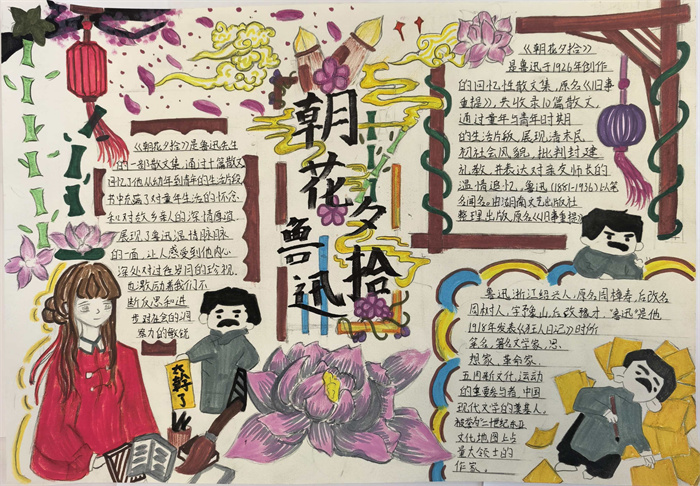 朝花夕拾
鲁迅
《朝花夕拾》是鲁迅先生
的一部散文集,通过十篇散文
回忆了他从幼年到青年的生活片段
书中充满了对童年生活的怀念
和对故乡亲人的深情厚谊
展现了鲁迅温情脉脉
的一面,让人感受到他内心
深处对过去岁月的珍视
也激励着我们不
断反思和进
步对社会的洞
察力的敏锐
不干了
《朝花夕拾》
是鲁迅于1926年创作
的回忆性散文集,原名《旧事
重提》,共收录10篇散文,
通过童年与青年时期
的生活片段,展现清末民
初社会风貌,批判封建
礼教,并表达对亲友师长的
温情追忆,鲁迅(1881-1936)以笔
名闻名,由湖南文艺出版社
整理出版,原名《旧事重提》
鲁迅,浙江绍兴人,原名周樟寿,后改名
周树人,字豫山,后改豫才,“鲁迅”是他
1918年发表《狂人日记》时所
笔名,著名文学家、思
想家、革命家,
五四新文化运动
的重要参与者,中国
现代文学的奠基人,
被誉为二十世纪东亚
文化地图上占
最大领土的
作家。